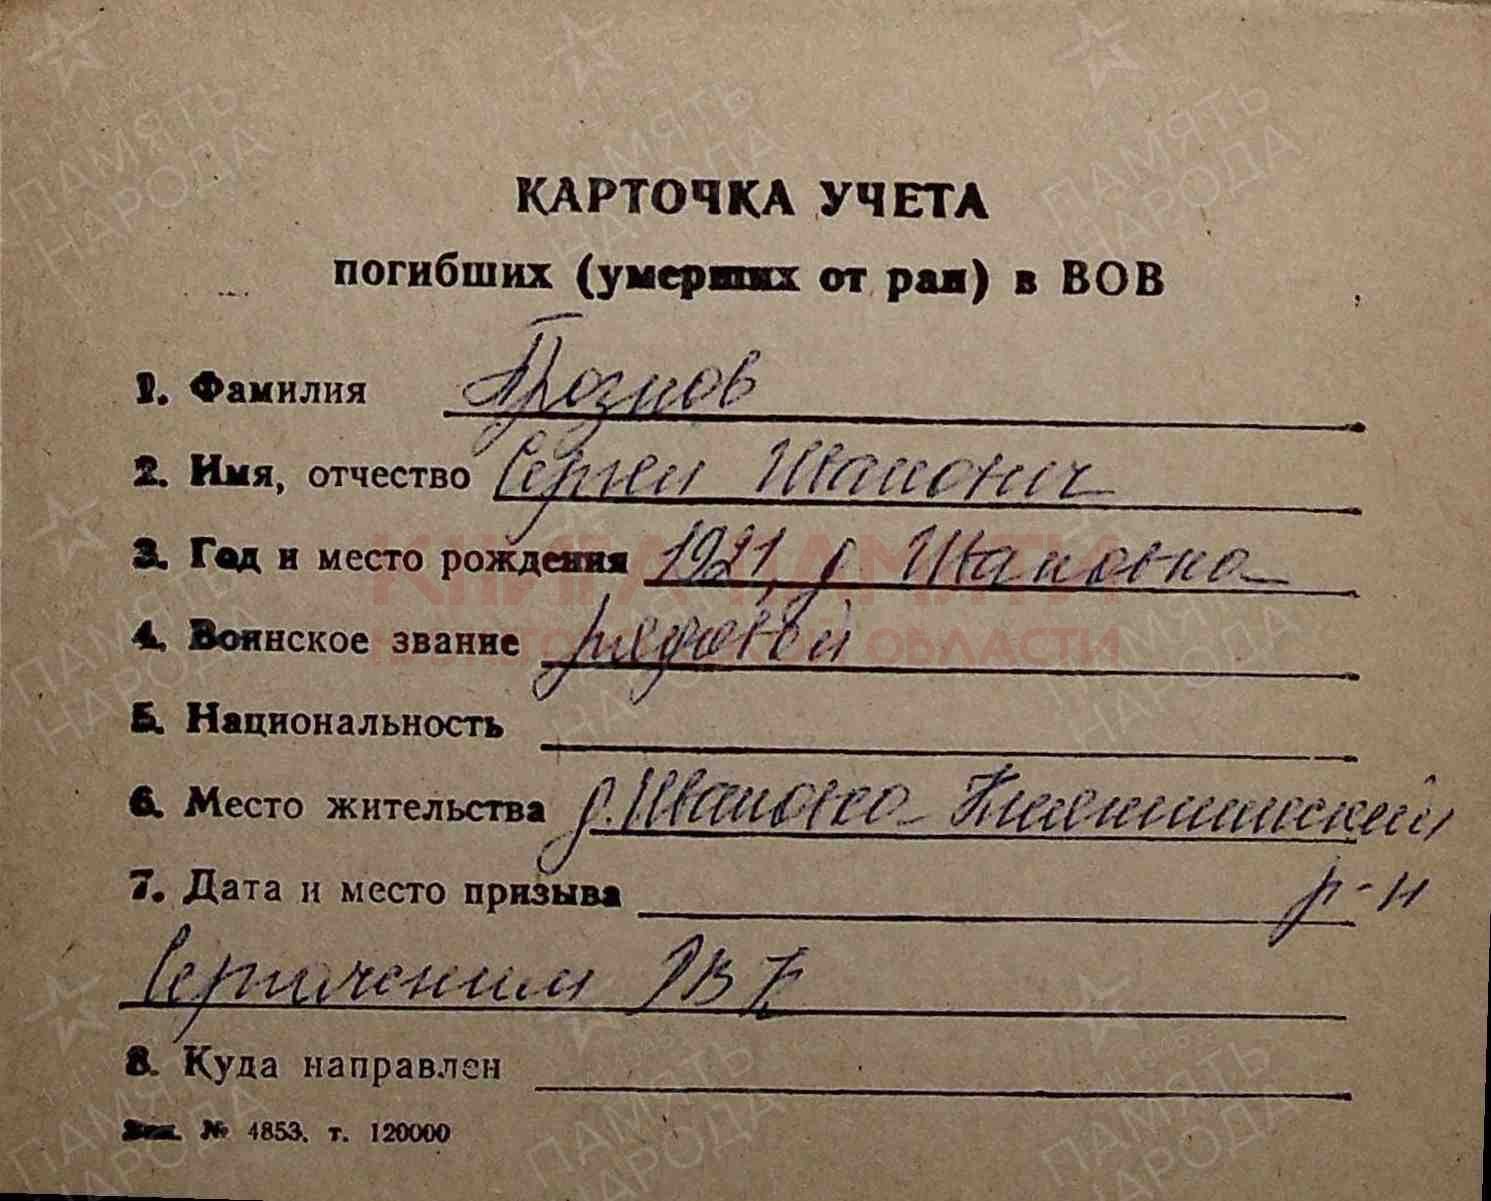 КАРТОЧКА УЧЕТА
погибших (умерших от ран) в ВОВ
1. Фамилия Грознов
2. Имя, отчество Сергей Иванович
3. Год и место рождения 1921, д Ивановка
4. Воинское звание рядовой
5. Национальность
6. Место жительства д. Ивановка
7. Дата и место призыва р-н
Сергачским РВК
8. Куда направлен
Зак. № 4853. т. 120000
КНИГА ПАМЯТИ
ОБЛАСТИ
ПАМЯТЬ
НАРОДА